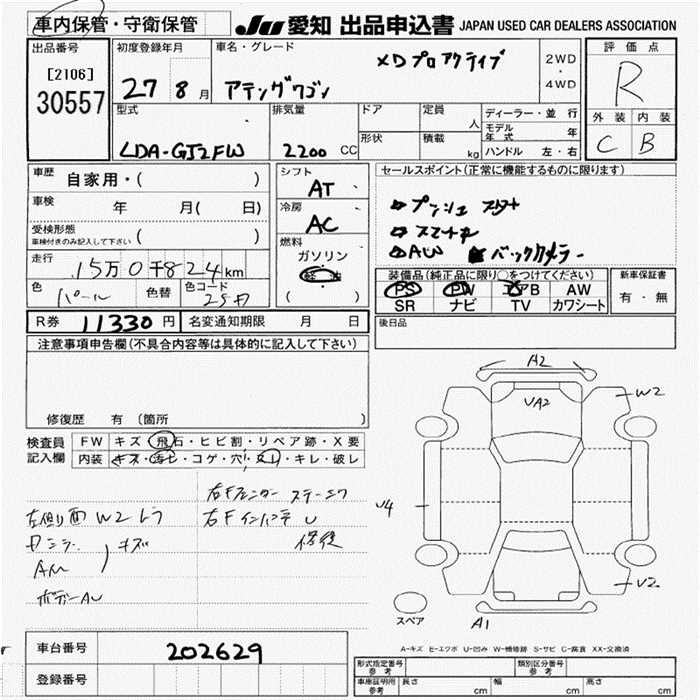 車内保管・守衛保管
JU 愛知 出品申込書 JAPAN USED CAR DEALERS ASSOCIATION
出品番号
[2106]
30557
初度登録年月
27 8 月
車名・グレード
XDプロアクティブ
アテンザワゴン
2WD
・
4WD
評価点
R
外装 内装
C B
型式
LDA-GJ2FW
排気量
2200 CC
ドア
形状
定員
人
積載
kg
ディーラー・並行
モデル年式 年
ハンドル 左・右
車歴 自家用・( )
車検 年 月( 日)
受検形態
車検付きのみ記入して下さい ( )
走行 15万0千824km
色 パール 色替 色コード 25D
シフト AT
冷房 AC
燃料
ガソリン
軽油
( )
セールスポイント(正常に機能するものに限ります)
プッシュスタート
スマートキー
AW バックカメラー
装備品(純正品に限り○をつけてください)
PS PW エアB AW
SR ナビ TV カワシート
新車保証書
有・無
R券 11330円 名変通知期限 月 日
後日品
注意事項申告欄(不具合内容等は具体的に記入して下さい)
修復歴 有 (箇所 )
検査員記入欄
FW キズ・飛石・ヒビ割・リペア跡・X要
内装 キズ・汚ヒ・コゲ・穴・スレ・キレ・破レ
右Fフェンダー ステーエク
左側面 W2
右Fインパネ U
修復
キズ
AW
ボデーAU
A2
UA2
W2
U4
U2
A1
スペア
A-キズ E-エクボ U-凹み W-補修跡 S-サビ C-腐食 XX-交換済
車台番号 202629
登録番号
形式指定番号 参考
類別区分番号 参考
車庫証明用 参考 長さ cm 幅 cm 高さ cm